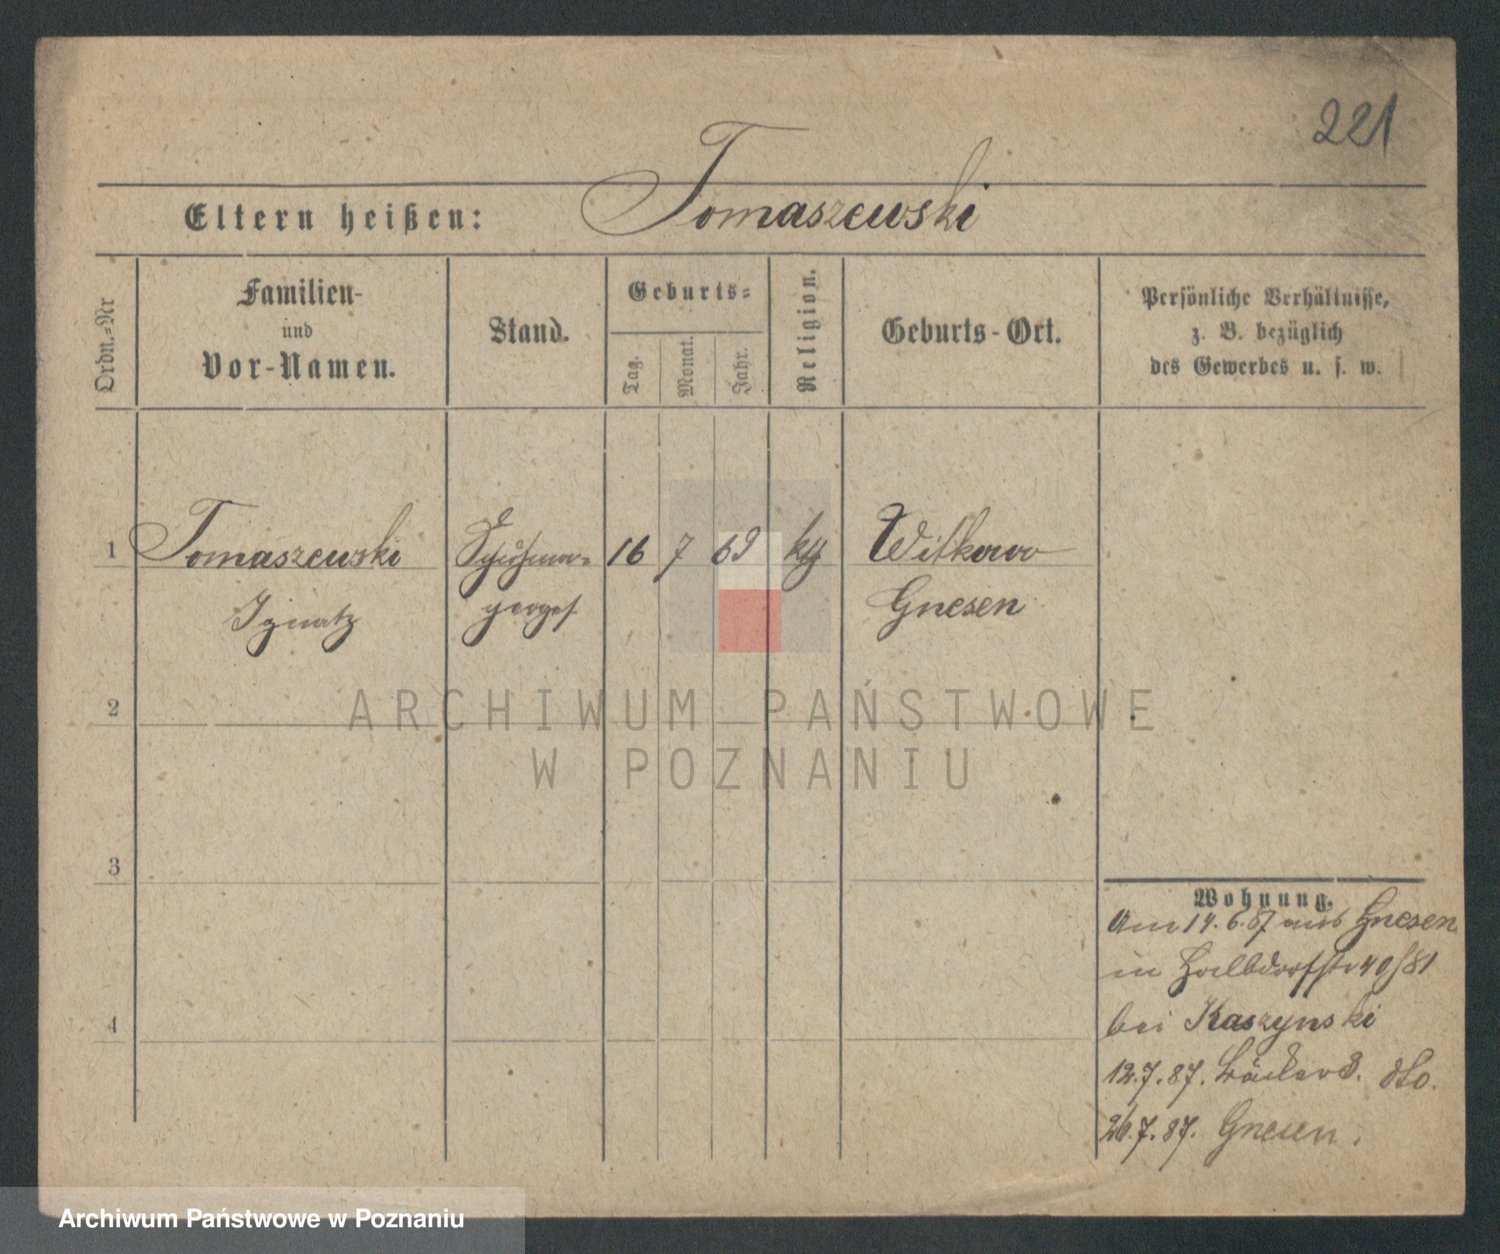 221
Eltern heißen: Tomaszewski
Ordn.=Nr
Familien-
und
Vor-Namen.
Stand.
Geburts=
Tag.
Monat.
Jahr.
Religion.
Geburts-Ort.
Persönliche Verhältnisse,
z. B. bezüglich
des Gewerbes u. s. w.
1 Tomaszewski Schuhma= 16 7 69 kg Witkowo
Ignatz gesges. Gnesen
2
3
4
Wohnung.
Am 14.6.87 aus Gnesen
in Halbdorfstr 40/81
bei Kaszynski
12.7.87. Bäcker 3. dto.
26.7.87. Gnesen.
ARCHIWUM PAŃSTWOWE
W POZNANIU
Archiwum Państwowe w Poznaniu